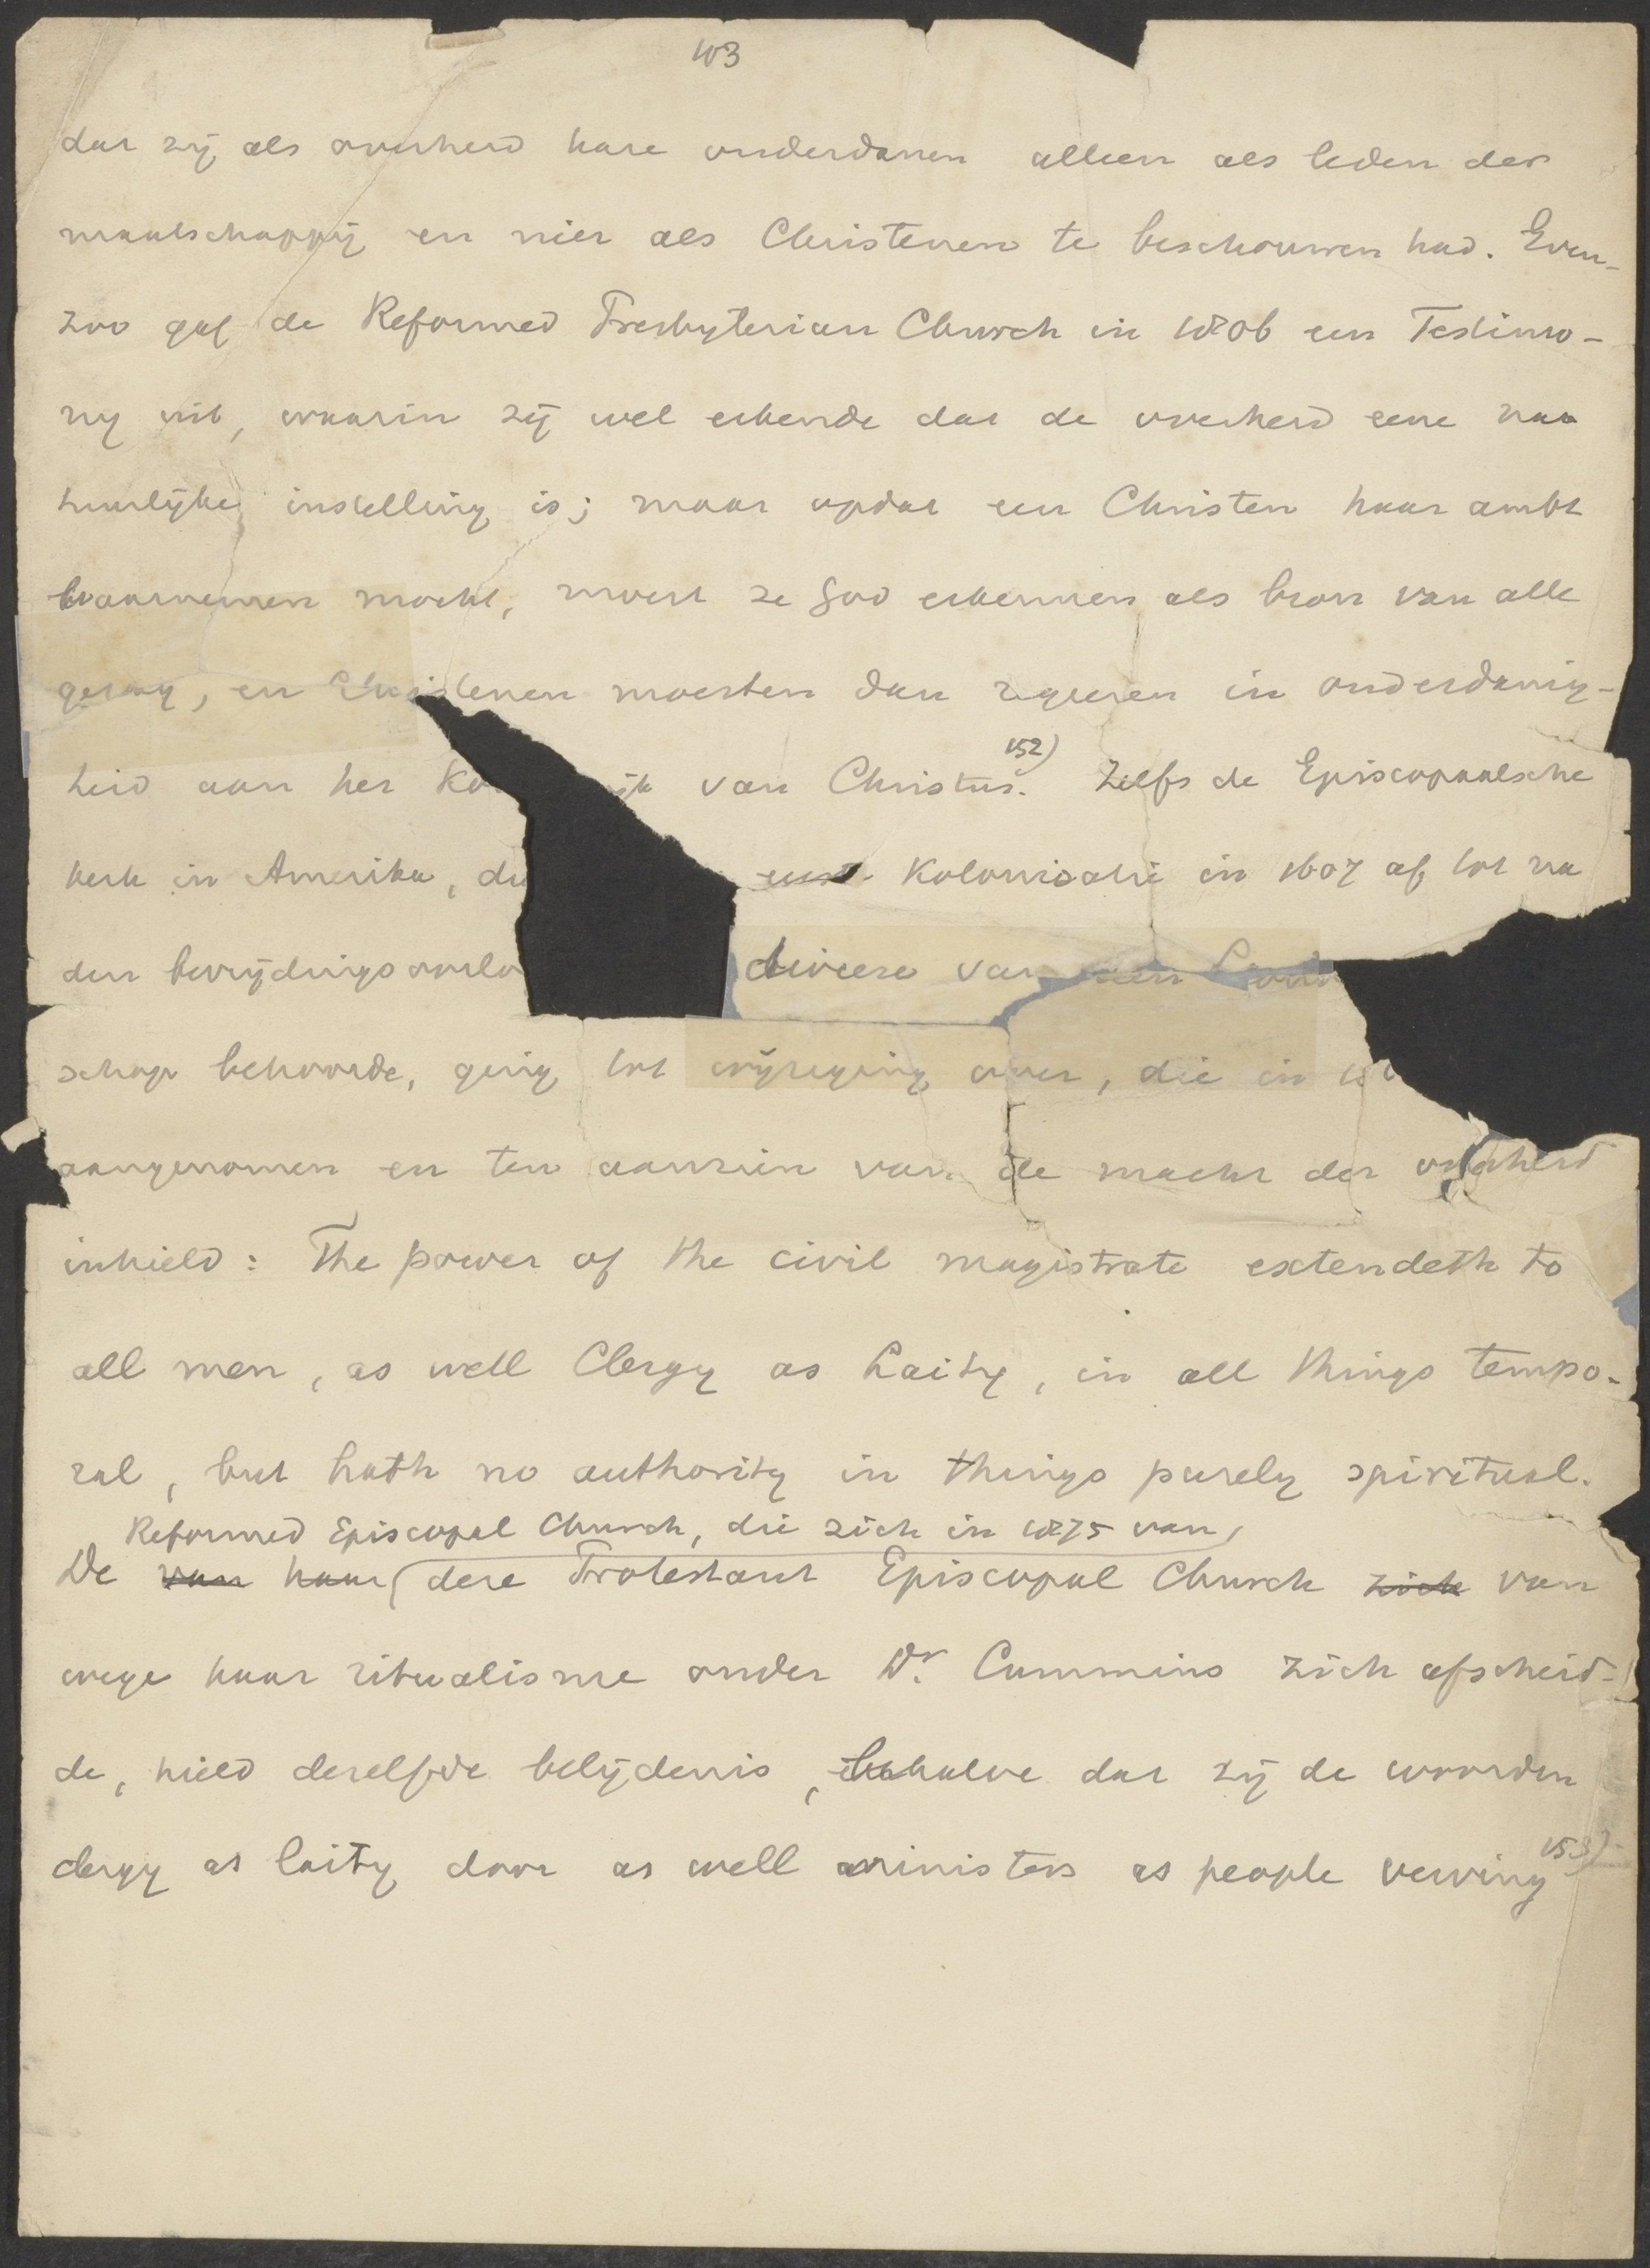 103
dat zij als overheid hare onderdanen alleen als leden der
maatschappij en niet als Christenen te beschouwen had. Even-
zoo gaf de Reformed Presbyterian Church in 1806 een Testimo-
ny uit, waarin zij wel erkende dat de overheid eene naa
tuurlijke instelling is; maar opdat een Christen haar ambt
waarnemen mocht, moest ze God erkennen als bron van alle
gezag, en Christenen moesten dan regeeren in onderdanig-
heid aan het Ko ijk van Christus. 152) Zelfs de Episcopaalsche
kerk in Amerika, di Kolonisatie in 1607 af tot na
den bevrijdingsoorlo diocese van Lond
schap behoorde, ging tot wijziging over, die in
aangenomen en ten aanzien van de macht der overheid
inhield: The power of the civil magistrate extendeth to
all men, as well Clergy as Laity, in all things tempo-
ral, but hath no authority in things purely spiritual.
Reformed Episcopal Church, die zich in 1875 van
De van haar dere Protestant Episcopal Church zich van
wege haar ritualisme onder Dr. Cummins zich afscheid-
de, hield dezelfde belijdenis, behalve dat zij de woorden
clergy as laity door as well ministers as people verving 153)